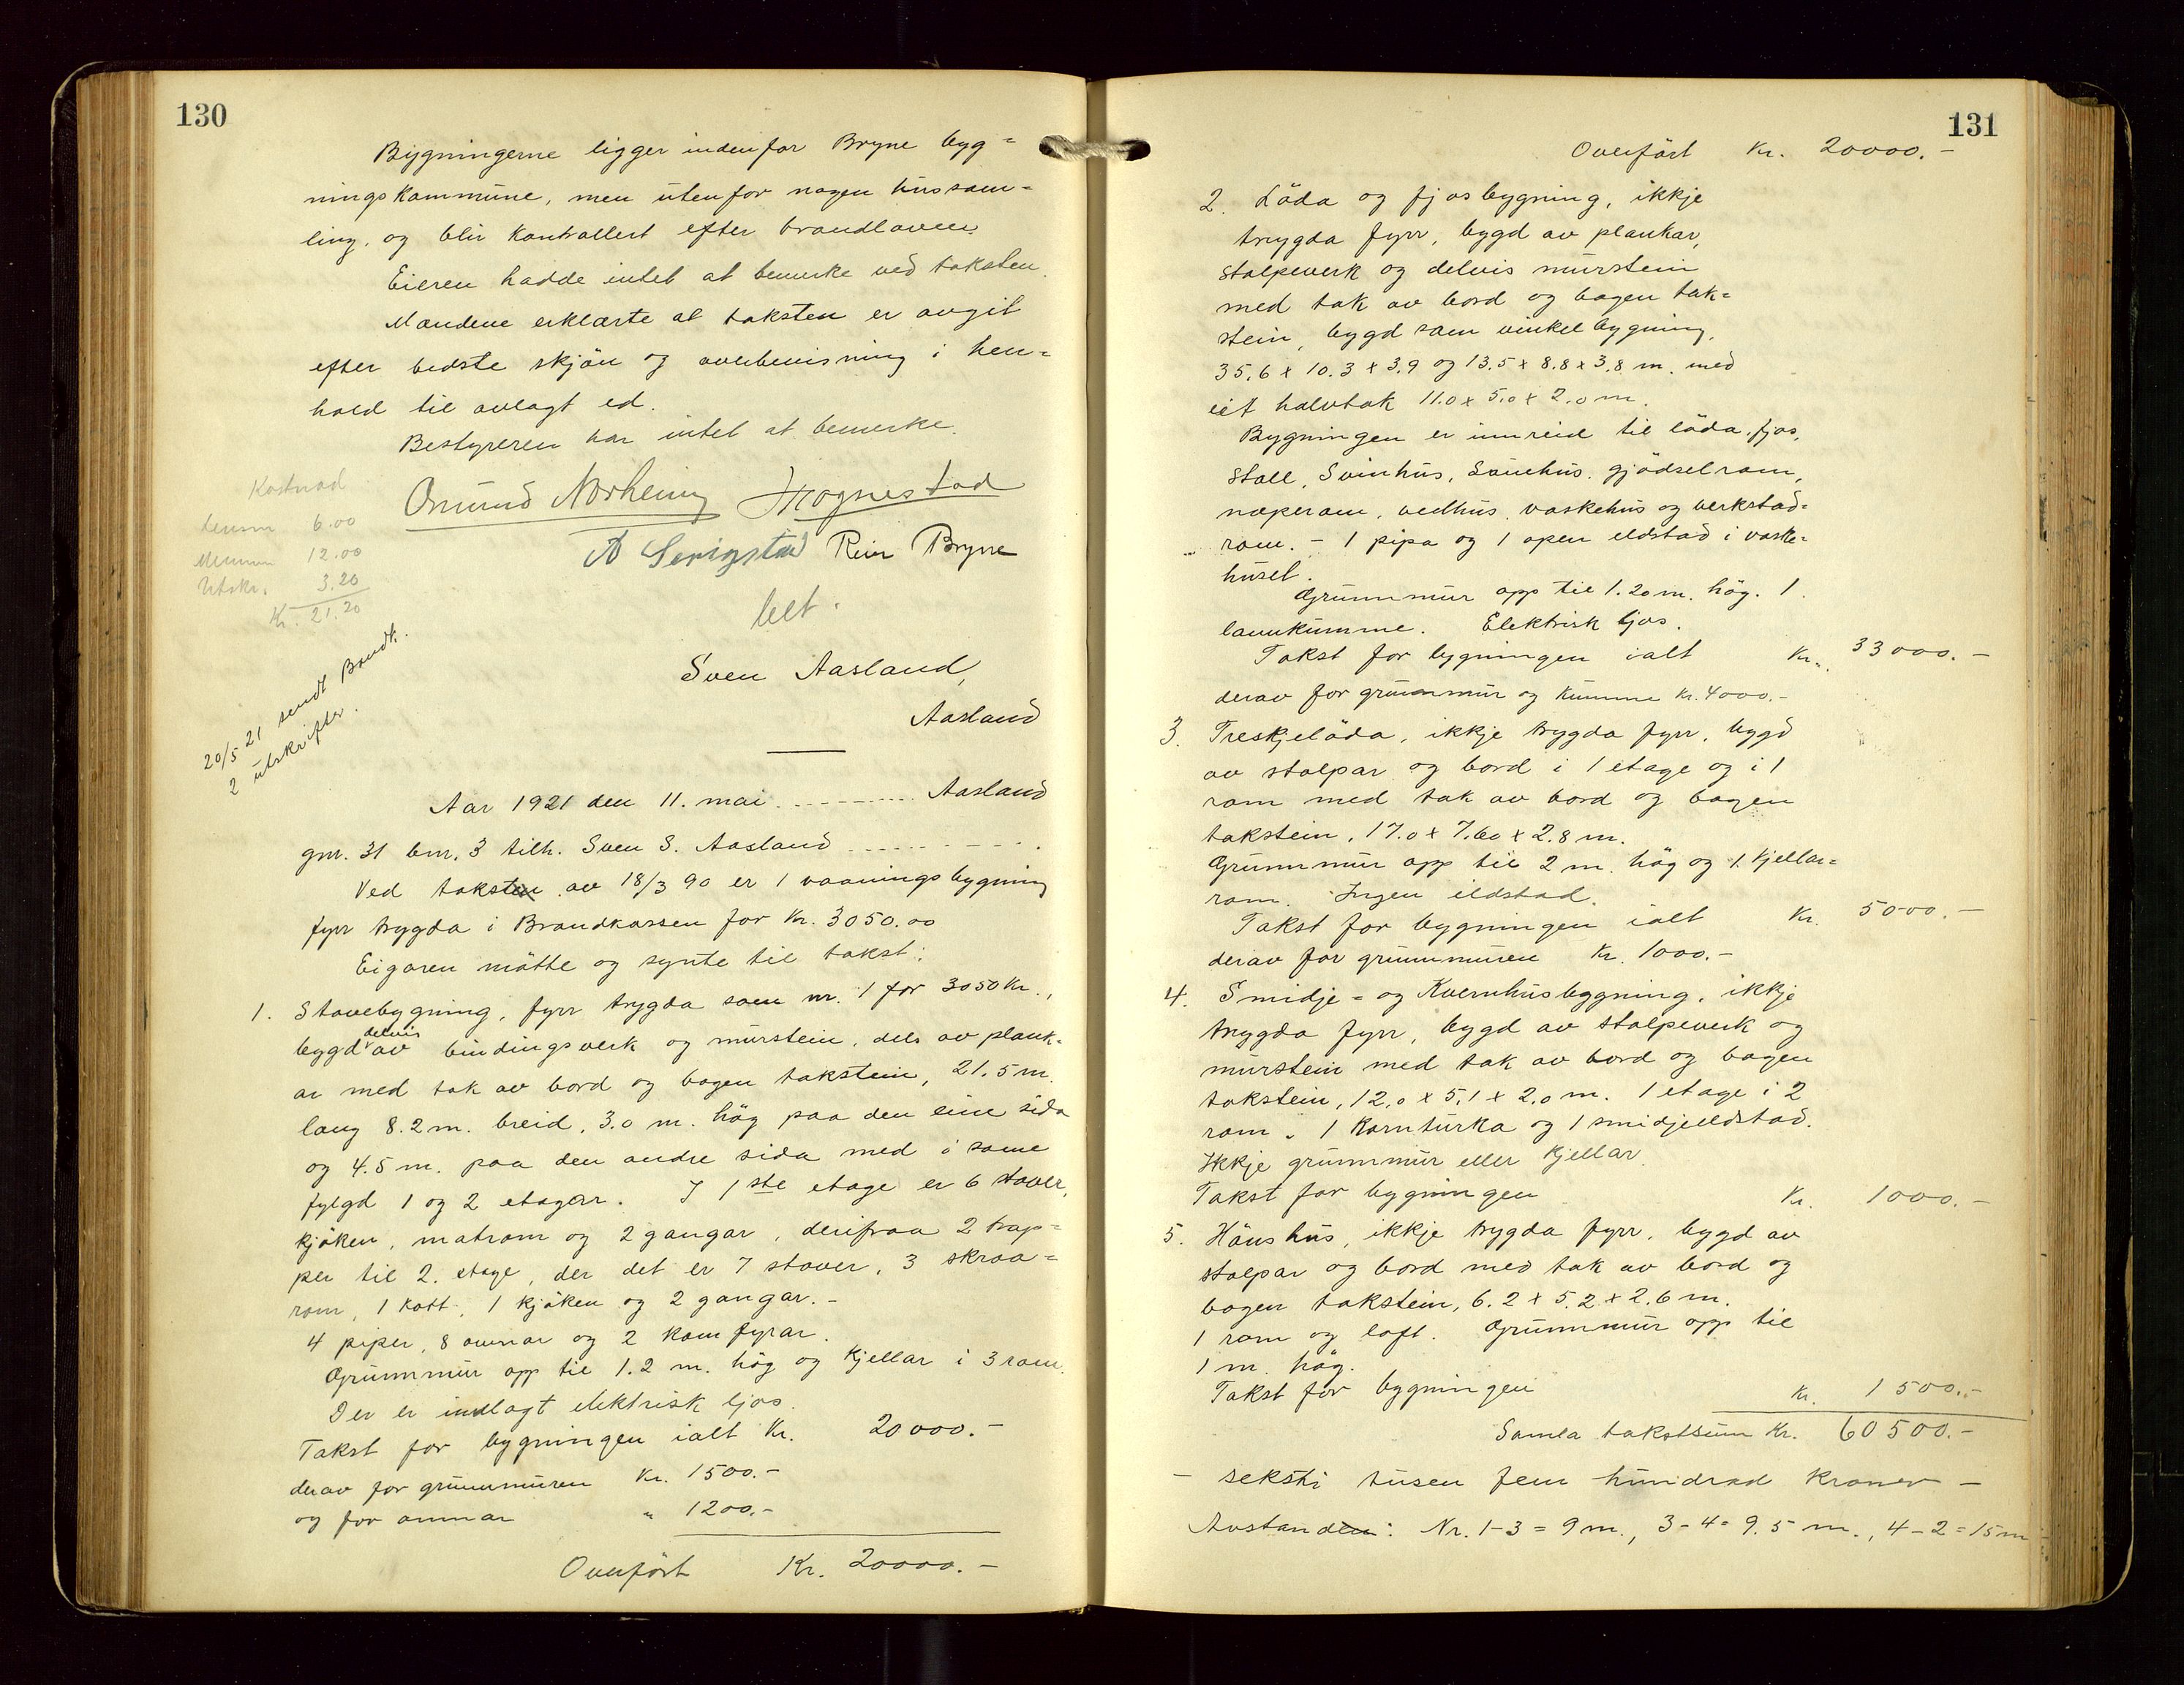 130
Bygningerne ligger indenfor Bryne byg=
ningskommune, men utenfor nogen hussam=
ling, og blir kontrollert efter brandloven.
Eieren hadde intet at bemerke ved taksten.
Mændene erklærte at taksten er avgit
efter bedste skjön og overbevisning i hen=
hold til avlagt ed.
Bestyreren har intet at bemerke.
Kostnad
Omund Norheim Hognestad
6.00
A Serigstad Rein Bryne
12.00
Utskr. 3.20
Kr. 21.20
lelt.
20/5 21 sendt Brandk.
2 utskrifter.
Sven Aasland,
Aasland
Aar 1921 den 11. mai .......... Aasland
gnr. 31 bnr. 3 tilh. Sven S. Aasland ..........
Ved taksten av 18/3 90 er 1 vaanings bygning
fyrr trygda i Brandkassen for Kr. 3050.00
Eigaren mötte og synte til takst:
1. Stovebygning, fyrr trygda som nr. 1 for 3050 Kr.,
bygd delvis av bindingsverk og murstein, dels av plank-
ar med tak av bord og bogen takstein, 21.5 m.
lang 8.2 m. breid, 3.0 m. hög paa den eine sida
og 4.5 m. paa den andre sida med i same
fylgd 1 og 2 etagar. I 1ste etage er 6 stover,
kjöken, matrom og 2 gangar, derifraa 2 trap=
per til 2. etage, der det er 7 stover, 3 skraa=
rom, 1 kott, 1 kjöken og 2 gangar. -
4 piper, 8 omnar og 2 komfyrar.
Grunnmur opp til 1.2 m. hög og Kjellar i 3 rom.
Der er innlagt elektrisk ljos.
Takst for bygningen ialt Kr. 20000.-
derav for grunnmuren Kr. 1500.-
og for omnar " 1200.-
Overfört Kr. 20000.-
131
Overfört Kr. 20000.-
2. Löda og fjosbygning, ikkje
trygda fyrr, bygd av plankar,
stolpeverk og delvis murstein
med tak av bord og bogen tak=
stein, bygd som vinkelbygning,
35.6 x 10.3 x 3.9 og 13.5 x 8.8 x 3.8 m. med
eit halvtak 11.0 x 5.0 x 2.0 m.
Bygningen er innreid til löda, fjos,
Stall, Svinhus, Sauehus, gjödselrom,
næperom, vedhus, vaskehus og verkstad=
rom. - 1 pipa og 1 open eldstad i vaske=
huset.
Grunnmur opp til 1.20 m. hög. 1
lannkumme. Elektrisk ljos.
Takst for bygningen ialt Kr. 33000.-
derav for grunnmur og Kumme Kr. 4000.-
3. Treskjelöda, ikkje trygda fyrr, bygd
av stolpar og bord i 1 etage og i 1
rom med tak av bord og bogen
takstein, 17.0 x 7.60 x 2.8 m.
Grunnmur opp til 2 m. hög og 1 kjellar=
rom. Ingen ildstad.
Takst for bygningen ialt Kr. 5000.-
derav for grunnmuren Kr. 1000.-
4. Smidje- og Kvernhusbygning, ikkje
trygda fyrr, bygd av stolpeverk og
murstein med tak av bord og bogen
takstein, 12.0 x 5.1 x 2.0 m. 1 etage i 2
rom. 1 Kornturka og 1 smidjeeldstad.
Ikkje grunnmur eller Kjellar
Takst for bygningen Kr. 1000.-
5. Hönshus, ikkje trygda fyrr, bygd av
stolpar og bord med tak av bord og
bogen takstein, 6.2 x 5.2 x 2.6 m.
1 rom og loft. Grunnmur opp til
1 m. hög.
Takst for bygningen Kr. 1500.-
Samla takstsum Kr. 60500.-
- seksti tusen fem hundrad kroner -
Avstanden: Nr. 1-3 = 9 m., 3-4 = 9.5 m., 4-2 = 15 m